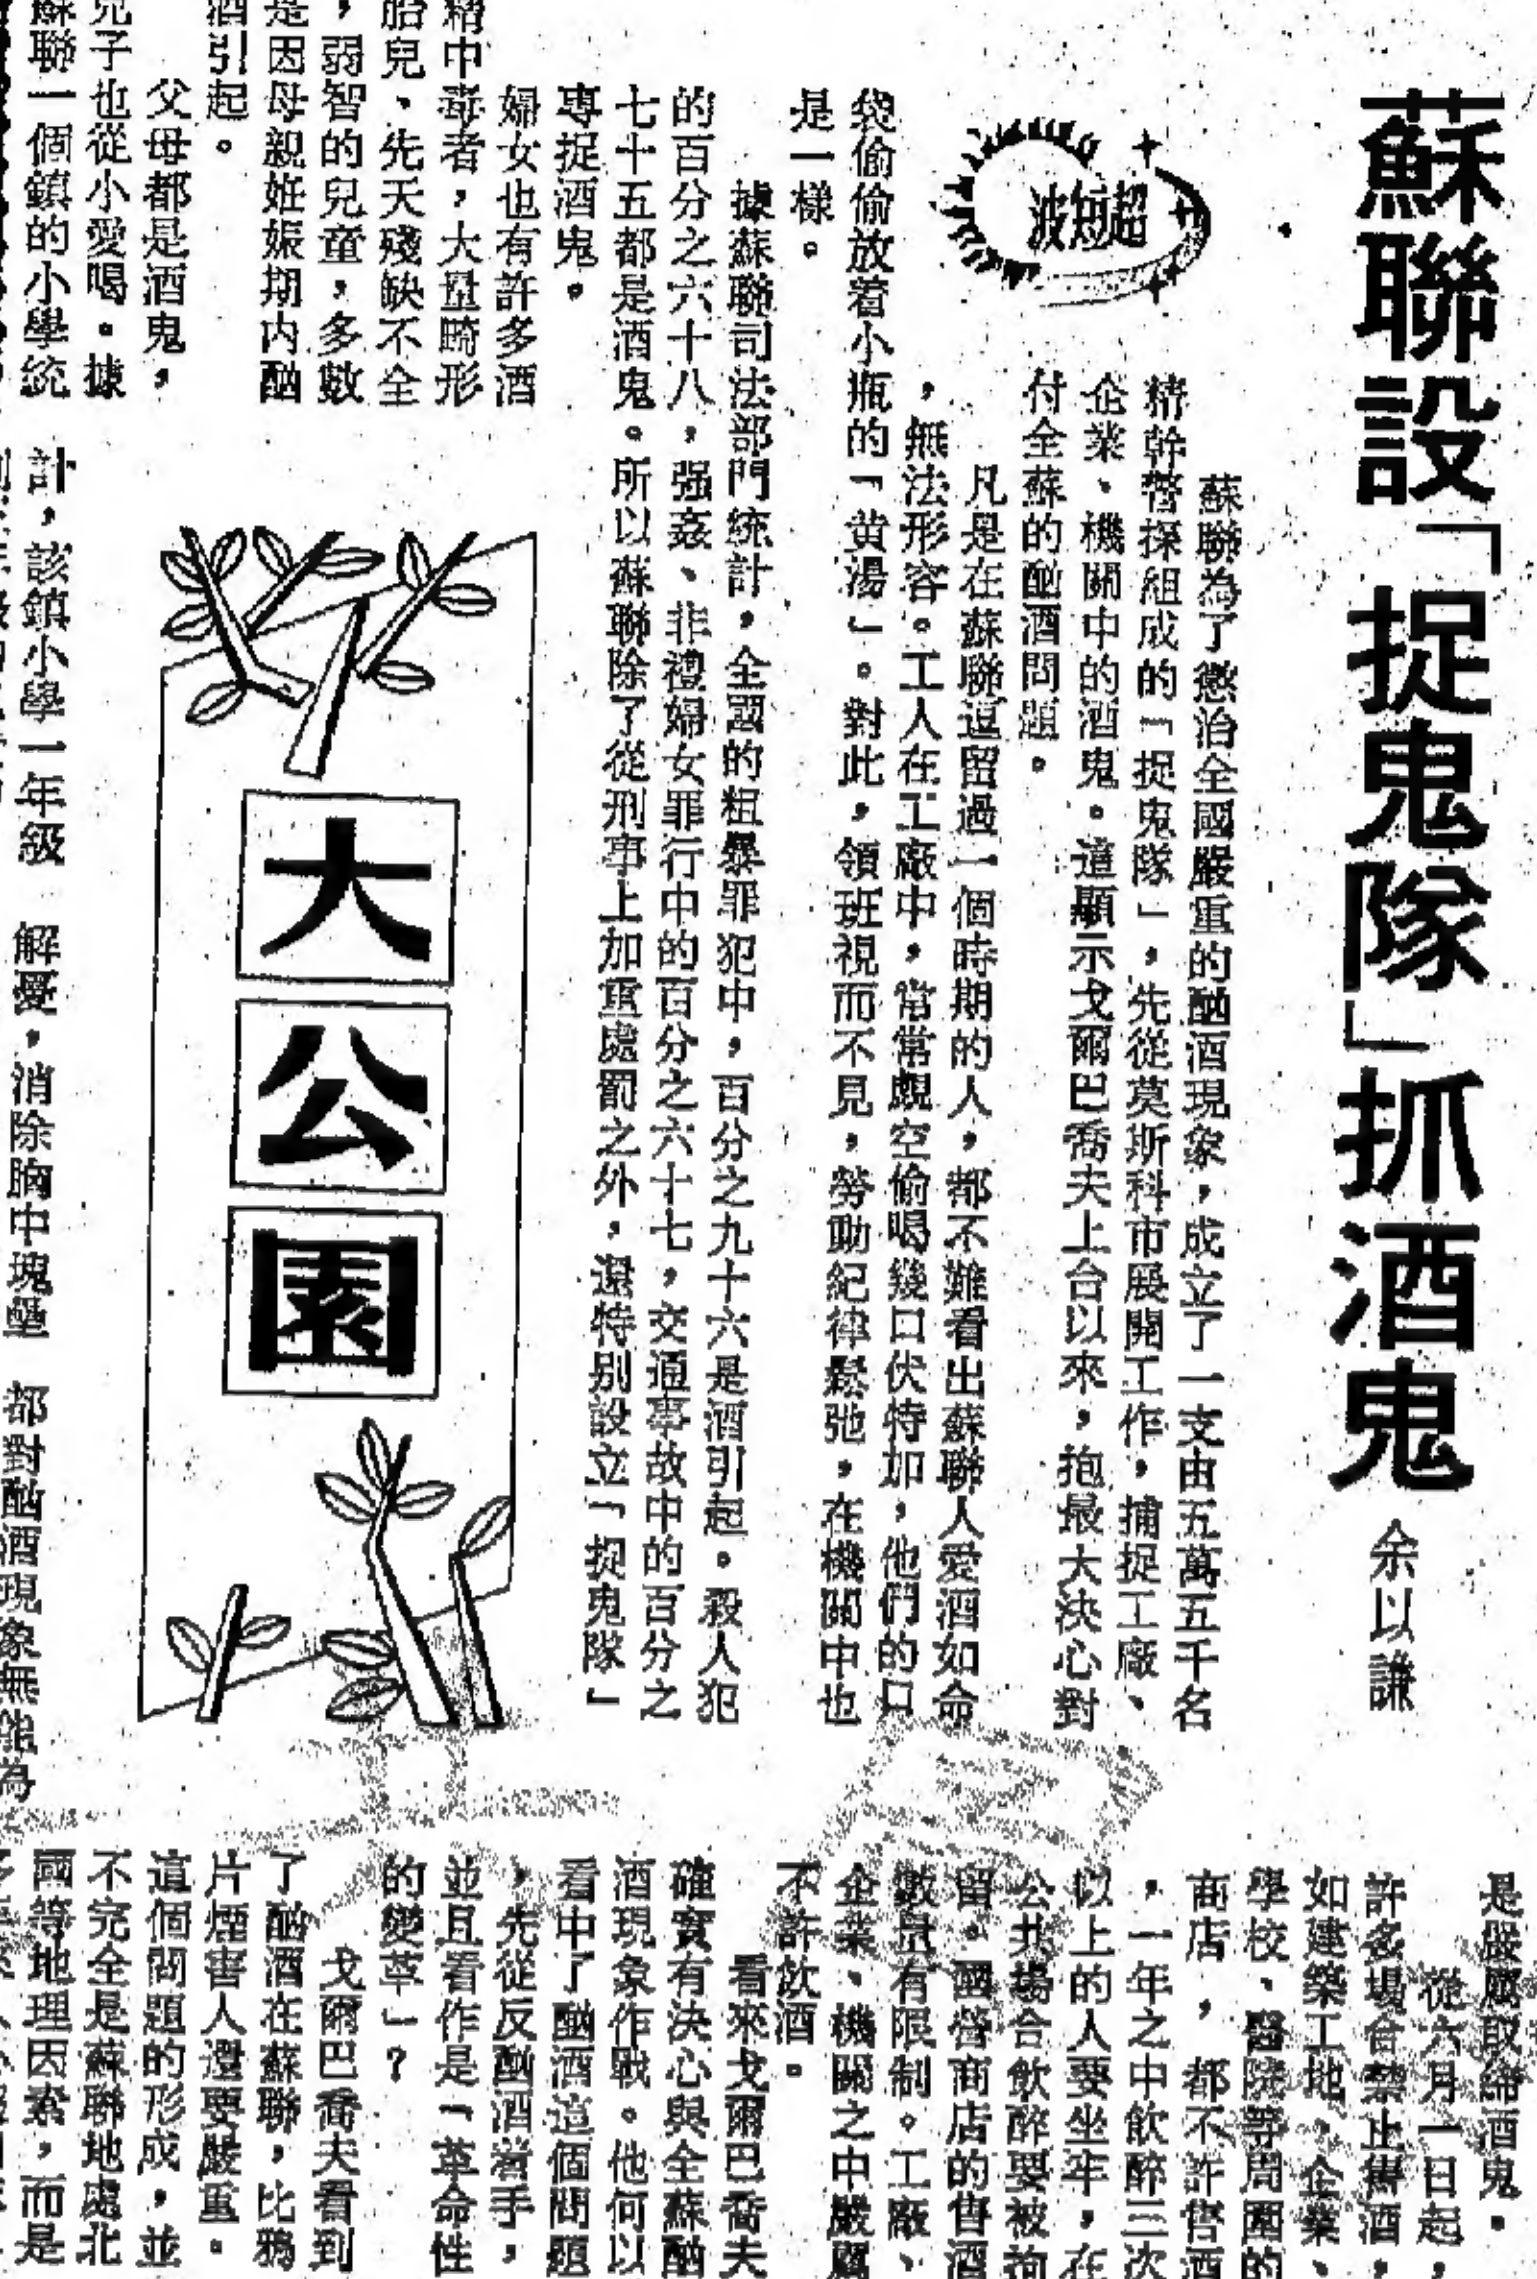 蘇聯設「捉鬼隊」抓酒鬼
余以謙
超短波
蘇聯為了懲治全國嚴重的酗酒現象，成立了一支由五萬五千名
精幹警探組成的「捉鬼隊」，先從莫斯科市展開工作，捕捉工廠、
企業、機關中的酒鬼。這顯示戈爾巴喬夫上台以來，抱最大決心對
付全蘇的酗酒問題。
凡是在蘇聯逗留過一個時期的人，都不難看出蘇聯人愛酒如命
，無法形容。工人在工廠中，常常覷空偷喝幾口伏特加，他們的口
袋偷偷放着小瓶的「黄湯」。對此，領班視而不見，勞動紀律鬆弛，在機關中也
是一樣。
據蘇聯司法部門統計，全國的粗暴罪犯中，百分之九十六是酒引起。殺人犯
的百分之六十八，强姦、非禮婦女罪行中的百分之六十七，交通事故中的百分之
七十五都是酒鬼。所以蘇聯除了從刑事上加重處罰之外，還特别設立「捉鬼隊」
專捉酒鬼。
婦女也有許多酒
精中毒者，大量畸形
胎兒、先天殘缺不全
，弱智的兒童，多數
是因母親妊娠期内酗
酒引起。
父母都是酒鬼，
兒子也從小愛喝。據
蘇聯一個鎮的小學統
大公園
計，該鎮小學一年級
解憂，消除胸中塊壘
都對酗酒現象無能為
是嚴厲取締酒鬼。
從六月一日起，
許多場合禁止售酒，
如建築工地，企業、
學校、醫院等周圍的
商店，都不許售酒
，一年之中飲醉三次
以上的人要坐牢，在
公共場合飲醉要被拘
留。國營商店的售酒
數量有限制。工廠、
企業、機關之中嚴厲
不許飲酒。
看來戈爾巴喬夫
確實有決心與全蘇酗
酒現象作戰。他何以
看中了酗酒這個問題
，先從反酗酒着手，
並且看作是「革命性
的變革」？
戈爾巴喬夫看到
了酗酒在蘇聯，比鴉
片煙害人還要嚴重。
這個問題的形成，並
不完全是蘇聯地處北
國等地理因素，而是